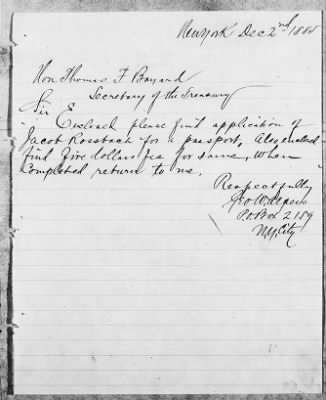 New York Dec 2nd 1885
Hon Thomas F Bayard
Secretary of the Treasury
Sir
Enclosed please find application of
Jacob Rossbach for a passport, Also enclosed
find five dollars fee for same, When
completed return to me.
Respectfully
Geo W
P.O. Box 2159
N.Y. City